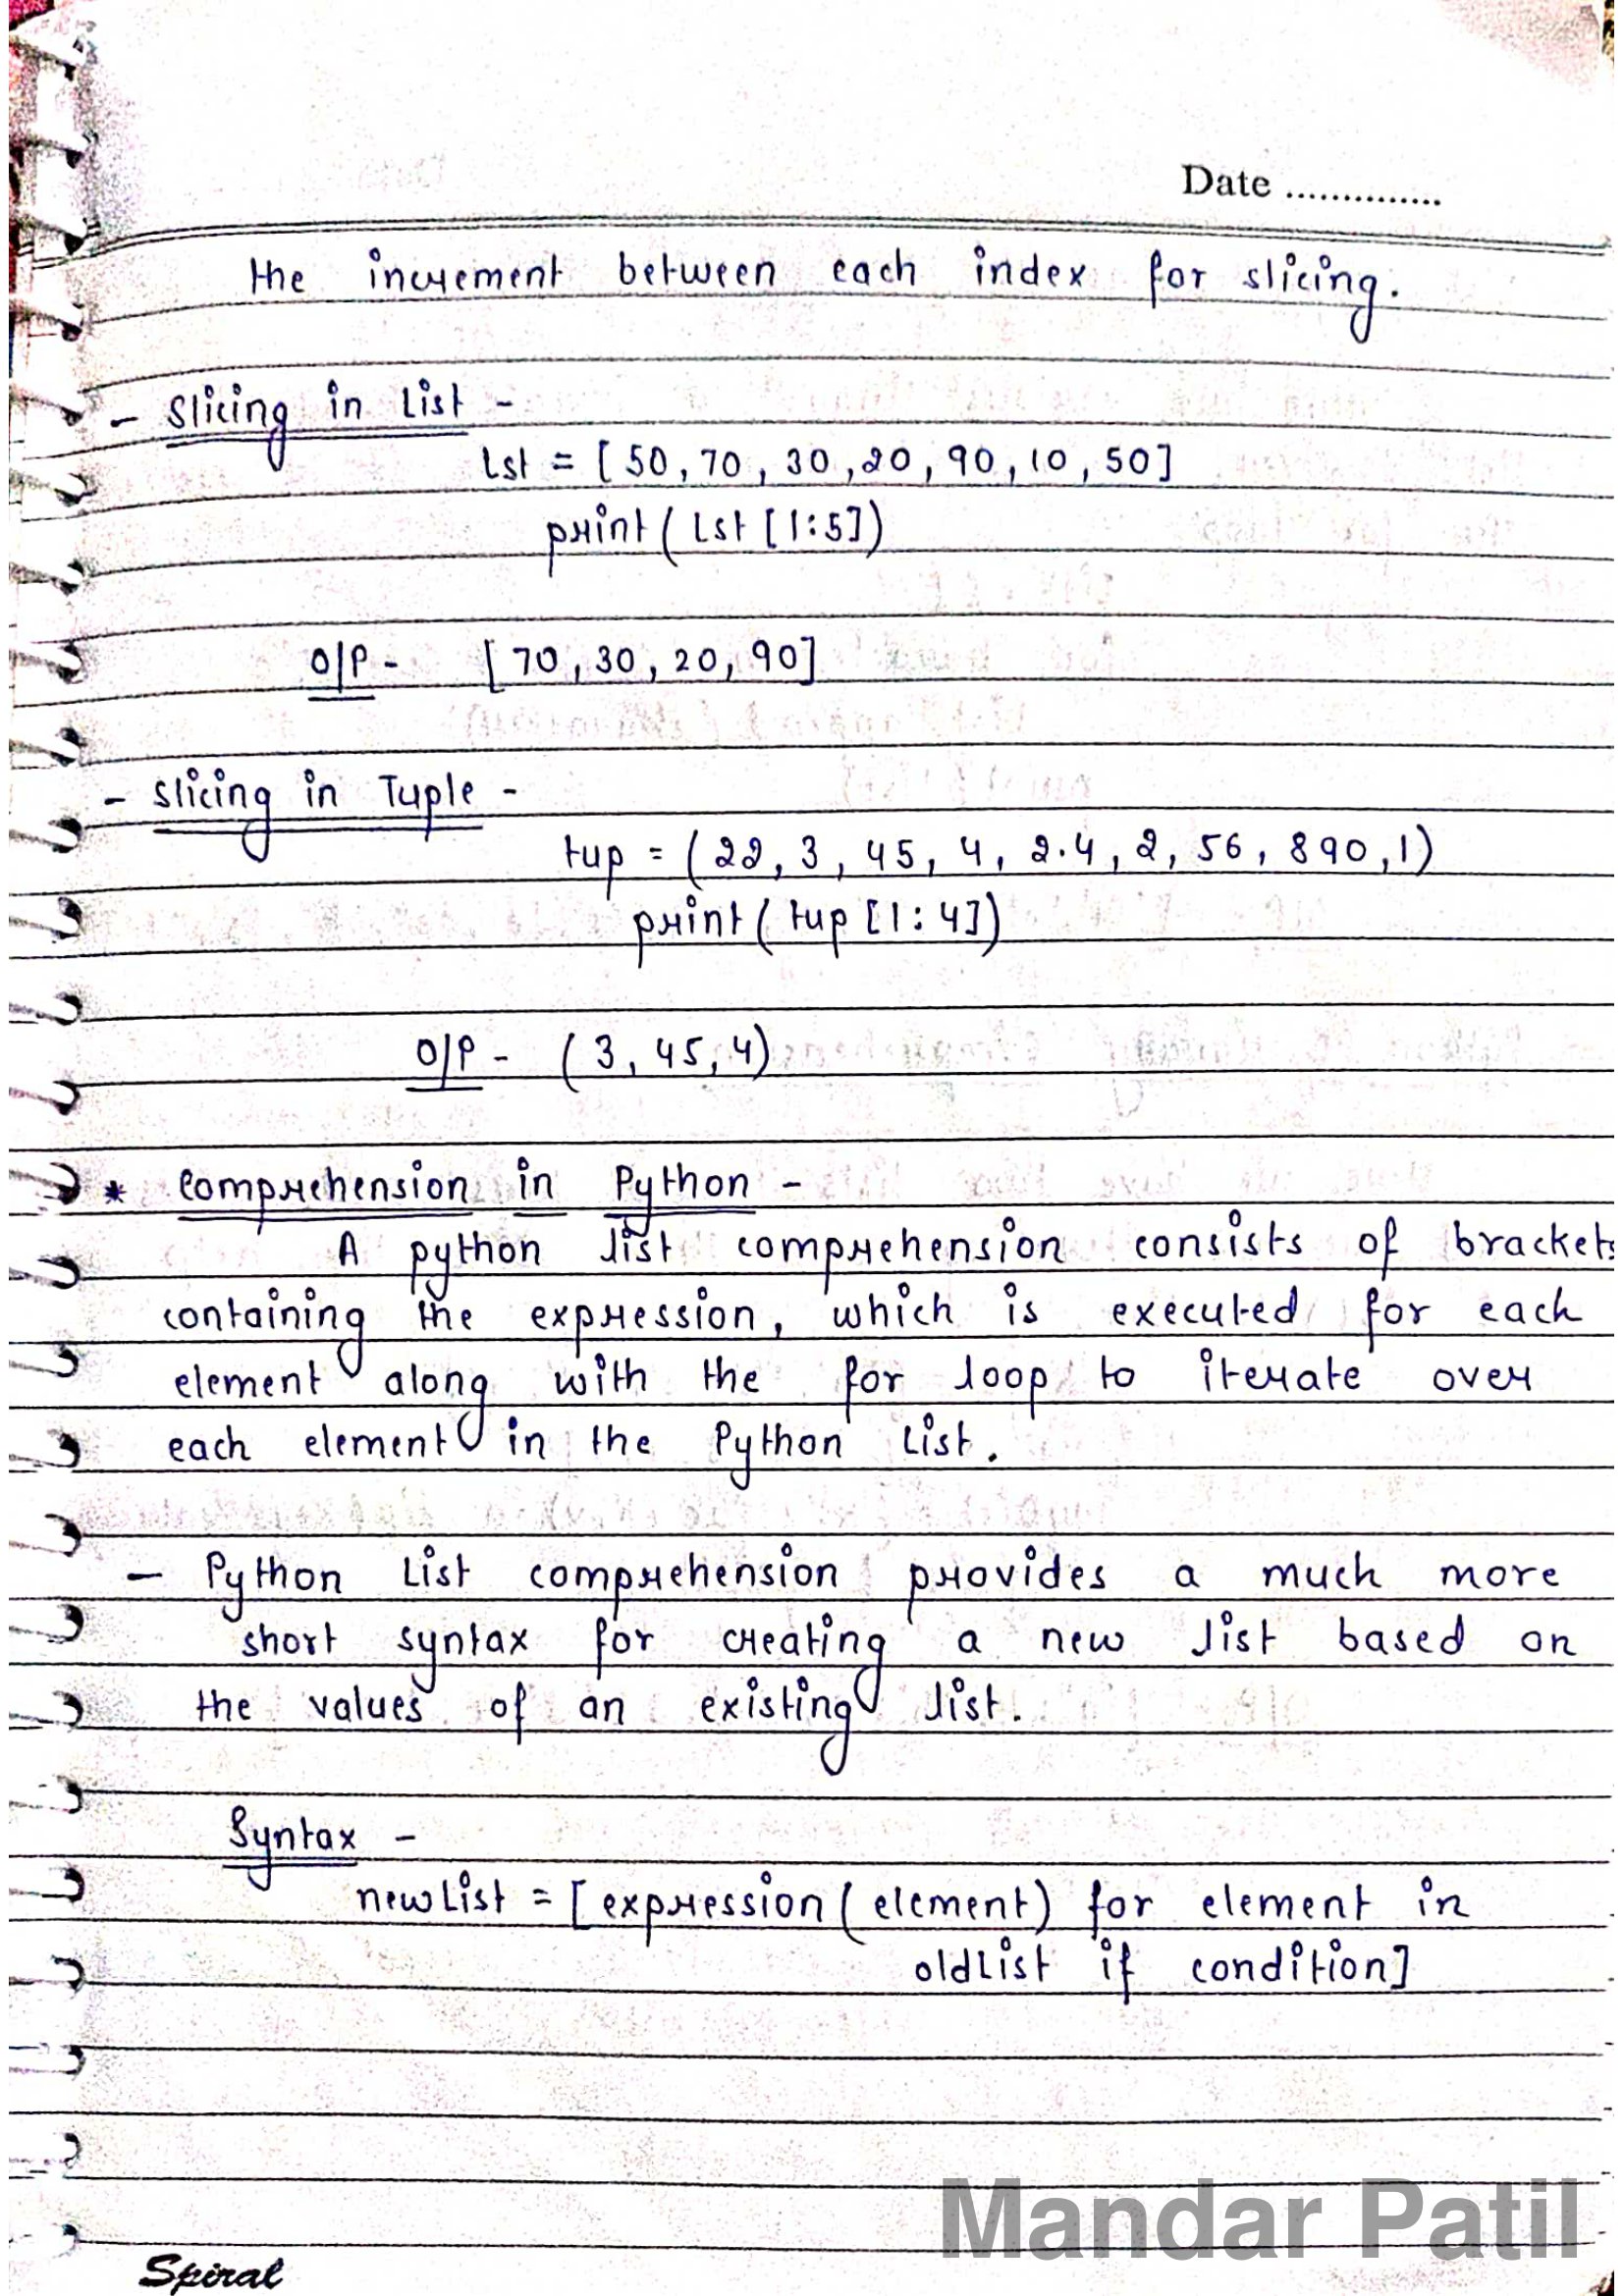 Date ..............
the increment between each index for slicing.
- Slicing in List -
Lst = [ 50, 70, 30, 20, 90, 10, 50]
print( Lst [1:5])
O/P - [ 70, 30, 20, 90]
- Slicing in Tuple -
tup = ( 22, 3, 45, 4, 2.4, 2, 56, 890, 1)
print( tup [1: 4])
O/P - ( 3, 45, 4)
* Comprehension in Python -
A python list comprehension consists of brackets
containing the expression, which is executed for each
element along with the for loop to iterate over
each element in the Python List.
- Python List comprehension provides a much more
short syntax for creating a new list based on
the values of an existing list.
Syntax -
newList = [ expression ( element) for element in
oldList if condition]
Mandar Patil
Spiral